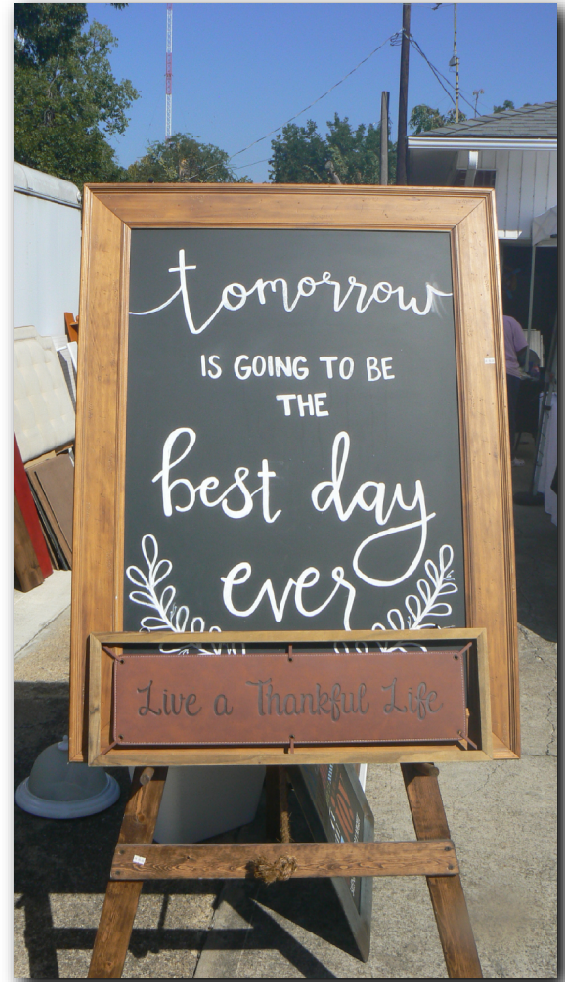 tomorrow
IS GOING TO BE
THE
best day
ever
Live a Thankful Life